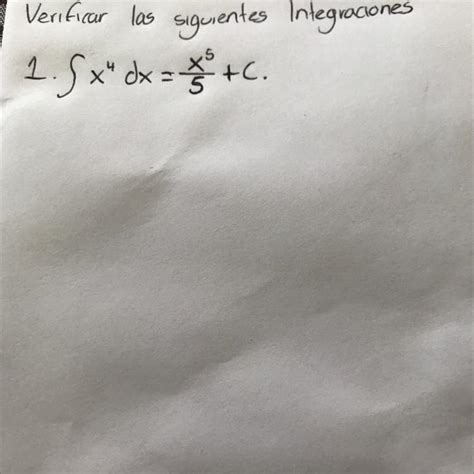 Verificar las siguientes Integraciones
1. ∫ x⁴ dx = x⁵/5 + C.